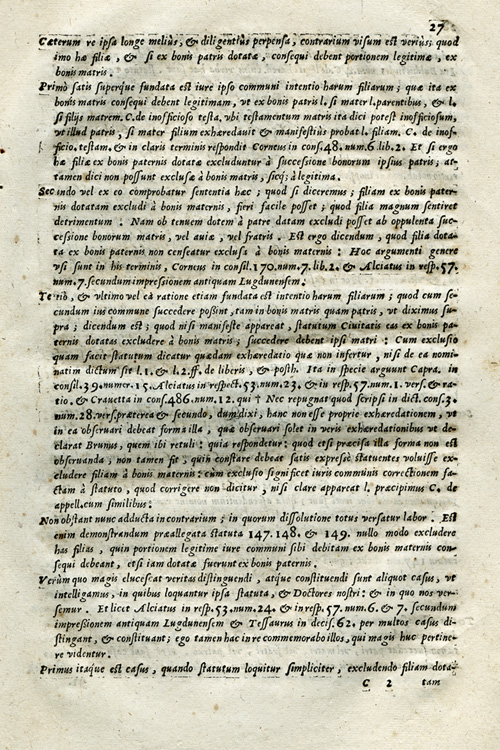 27
Cæterum re ipsa longe melius, & diligentius perpensa, contrarium visum est verius; quod
imo hæ filiæ, & si ex bonis patris dotatæ, consequi debent portionem legitimæ, ex
bonis matris.
Primò satis superque fundata est iure ipso communi intentio harum filiarum; quæ ita ex
bonis matris consequi debent legitimam, vt ex bonis patris l. si mater l. parentibus, & l.
si filijs matrem. C. de inofficioso testa. vbi testamentum matris ita dici potest inofficiosum,
vt illud patris, si mater filium exhæredauit & manifestius probat l. filiam. C. de inof-
ficio. testam. & in claris terminis respondit Corneus in cons. 48. num. 6. lib. 2. Et si ergo
hæ filiæ ex bonis paternis dotatæ excluduntur à successione bonorum ipsius patris; at-
tamen dici non possunt exclusæ à bonis matris, sicq; à legitima.
Secundo vel ex eo comprobatur sententia hæc; quod si diceremus; filiam ex bonis pater-
nis dotatam excludi à bonis maternis, fieri facile posset; quod filia magnum sentiret
detrimentum: Nam ob tenuem dotem à patre datam excludi posset ab oppulenta suc-
cessione bonorum matris, vel auiæ, vel fratris. Est ergo dicendum, quod filia dota-
ta ex bonis paternis non censeatur exclusa à bonis maternis: Hoc argumenti genere
vsi sunt in his terminis, Corneus in consil. 170. num. 7. lib. 2. & Alciatus in resp. 57.
num. 7. secundum impressionem antiquam Lugdunensem.
Tertiò, & vltimo vel ea ratione etiam fundata est intentio harum filiarum; quod cum se-
cundum ius commune succedere possint, tam in bonis matris quam patris, vt diximus su-
pra; dicendum est; quod nisi manifeste appareat, statutum Ciuitatis eas ex bonis pa-
ternis dotatas excludere à bonis matris; succedere debent ipsi matri: Cum exclusio
quam facit statutum dicatur quædam exhæredatio quæ non infertur, nisi de ea nomi-
natim dictum sit l. 1. & l. 2. ff. de liberis, & posth. Ita in specie arguunt Capra. in
consil. 39. numer. 15. Alciatus in respect. 53. num. 23. & in resp. 57. num. 1. vers. & ra-
tio. & Crauetta in cons. 486. num. 12. qui † Nec repugnat quod scripsi in dict. cons. 3.
num. 28. vers. præterea & secundo, dum dixi, hanc non esse proprie exhæredationem, vt
in ea obseruari debeat forma illa, quæ obseruari solet in veris exhæredationibus vt de-
clarat Brunus, quem ibi retuli: quia respondetur: quod etsi præcisa illa forma non est
obseruanda, non tamen fit, quin constare debeat satis expresse statuentes voluisse ex-
cludere filiam à bonis maternis: cùm exclusio significet iuris communis correctionem fa-
ctam à statuto, quod corrigere non dicitur, nisi clare appareat l. præcipimus C. de
appell. cum similibus:
Non obstant nunc adducta in contrarium; in quorum dissolutione totus versatur labor. Est
enim demonstrandum præallegata statuta 147. 148. & 149. nullo modo excludere
has filias, quin portionem legitime iure communi sibi debitam ex bonis maternis con-
sequi debeant, etsi iam dotatæ fuerunt ex bonis paternis.
Verùm quo magis elucescat veritas distinguendi, atque constituendi sunt aliquot casus, vt
intelligamus, in quibus loquantur ipsa statuta, & Doctores nostri: & in quo nos ver-
semur. Et licet Alciatus in resp. 53. num. 24. & in resp. 57. num. 6. & 7. secundum
impressionem antiquam Lugdunensem & Tessaurus in decis. 62. per multos casus di-
stingant, & constituant; ego tamen hac in re commemorabo illos, qui magis huc pertine-
re videntur.
Primus itaque est casus, quando statutum loquitur simpliciter, excludendo filiam dota-
C 2 tam